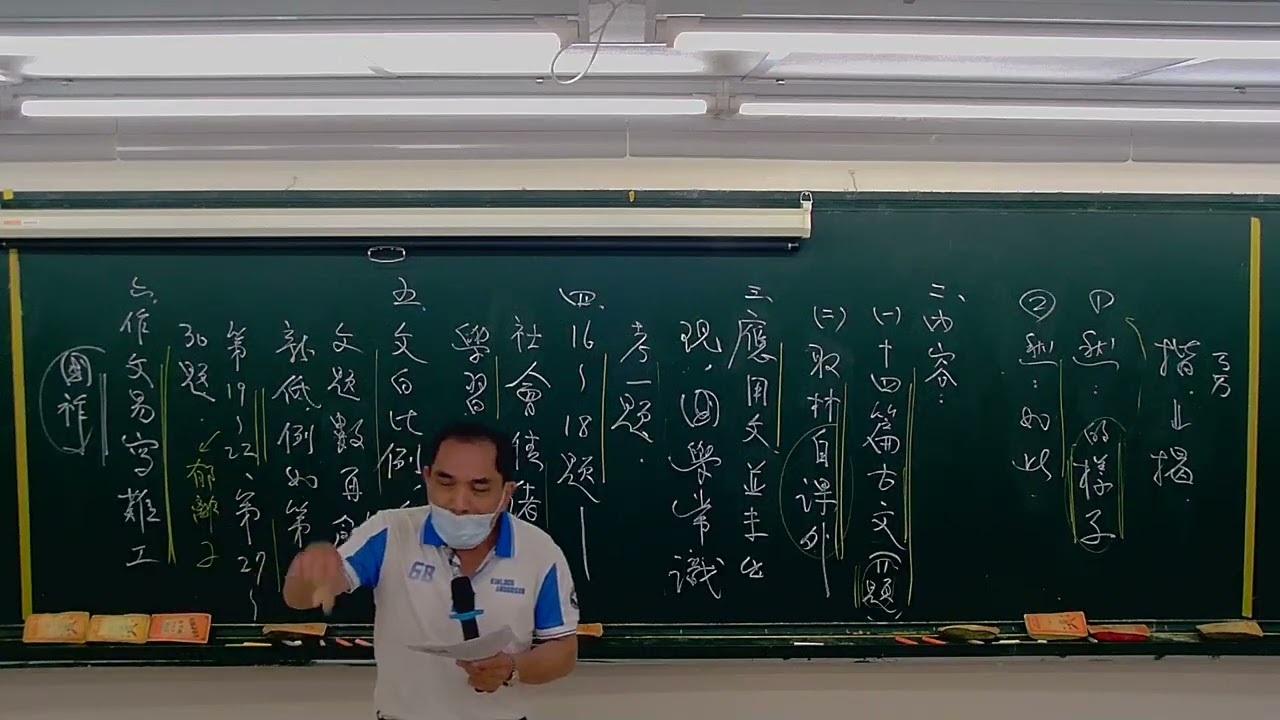 揩→揭
ㄎㄞ
①然：的樣子
②然：如此
二、內容：
(一)十四篇古文(11題)
(二)取材自課外
三、應用文並未出
現，國學常識
考一題．
四、16～18題—
社會
學習
五、文白比例
文題數再
新低例如第
第19～22、第27～
30題．
郁離子
六、作文易寫難工
國祚
GB
KINLOCH
ANDERSON